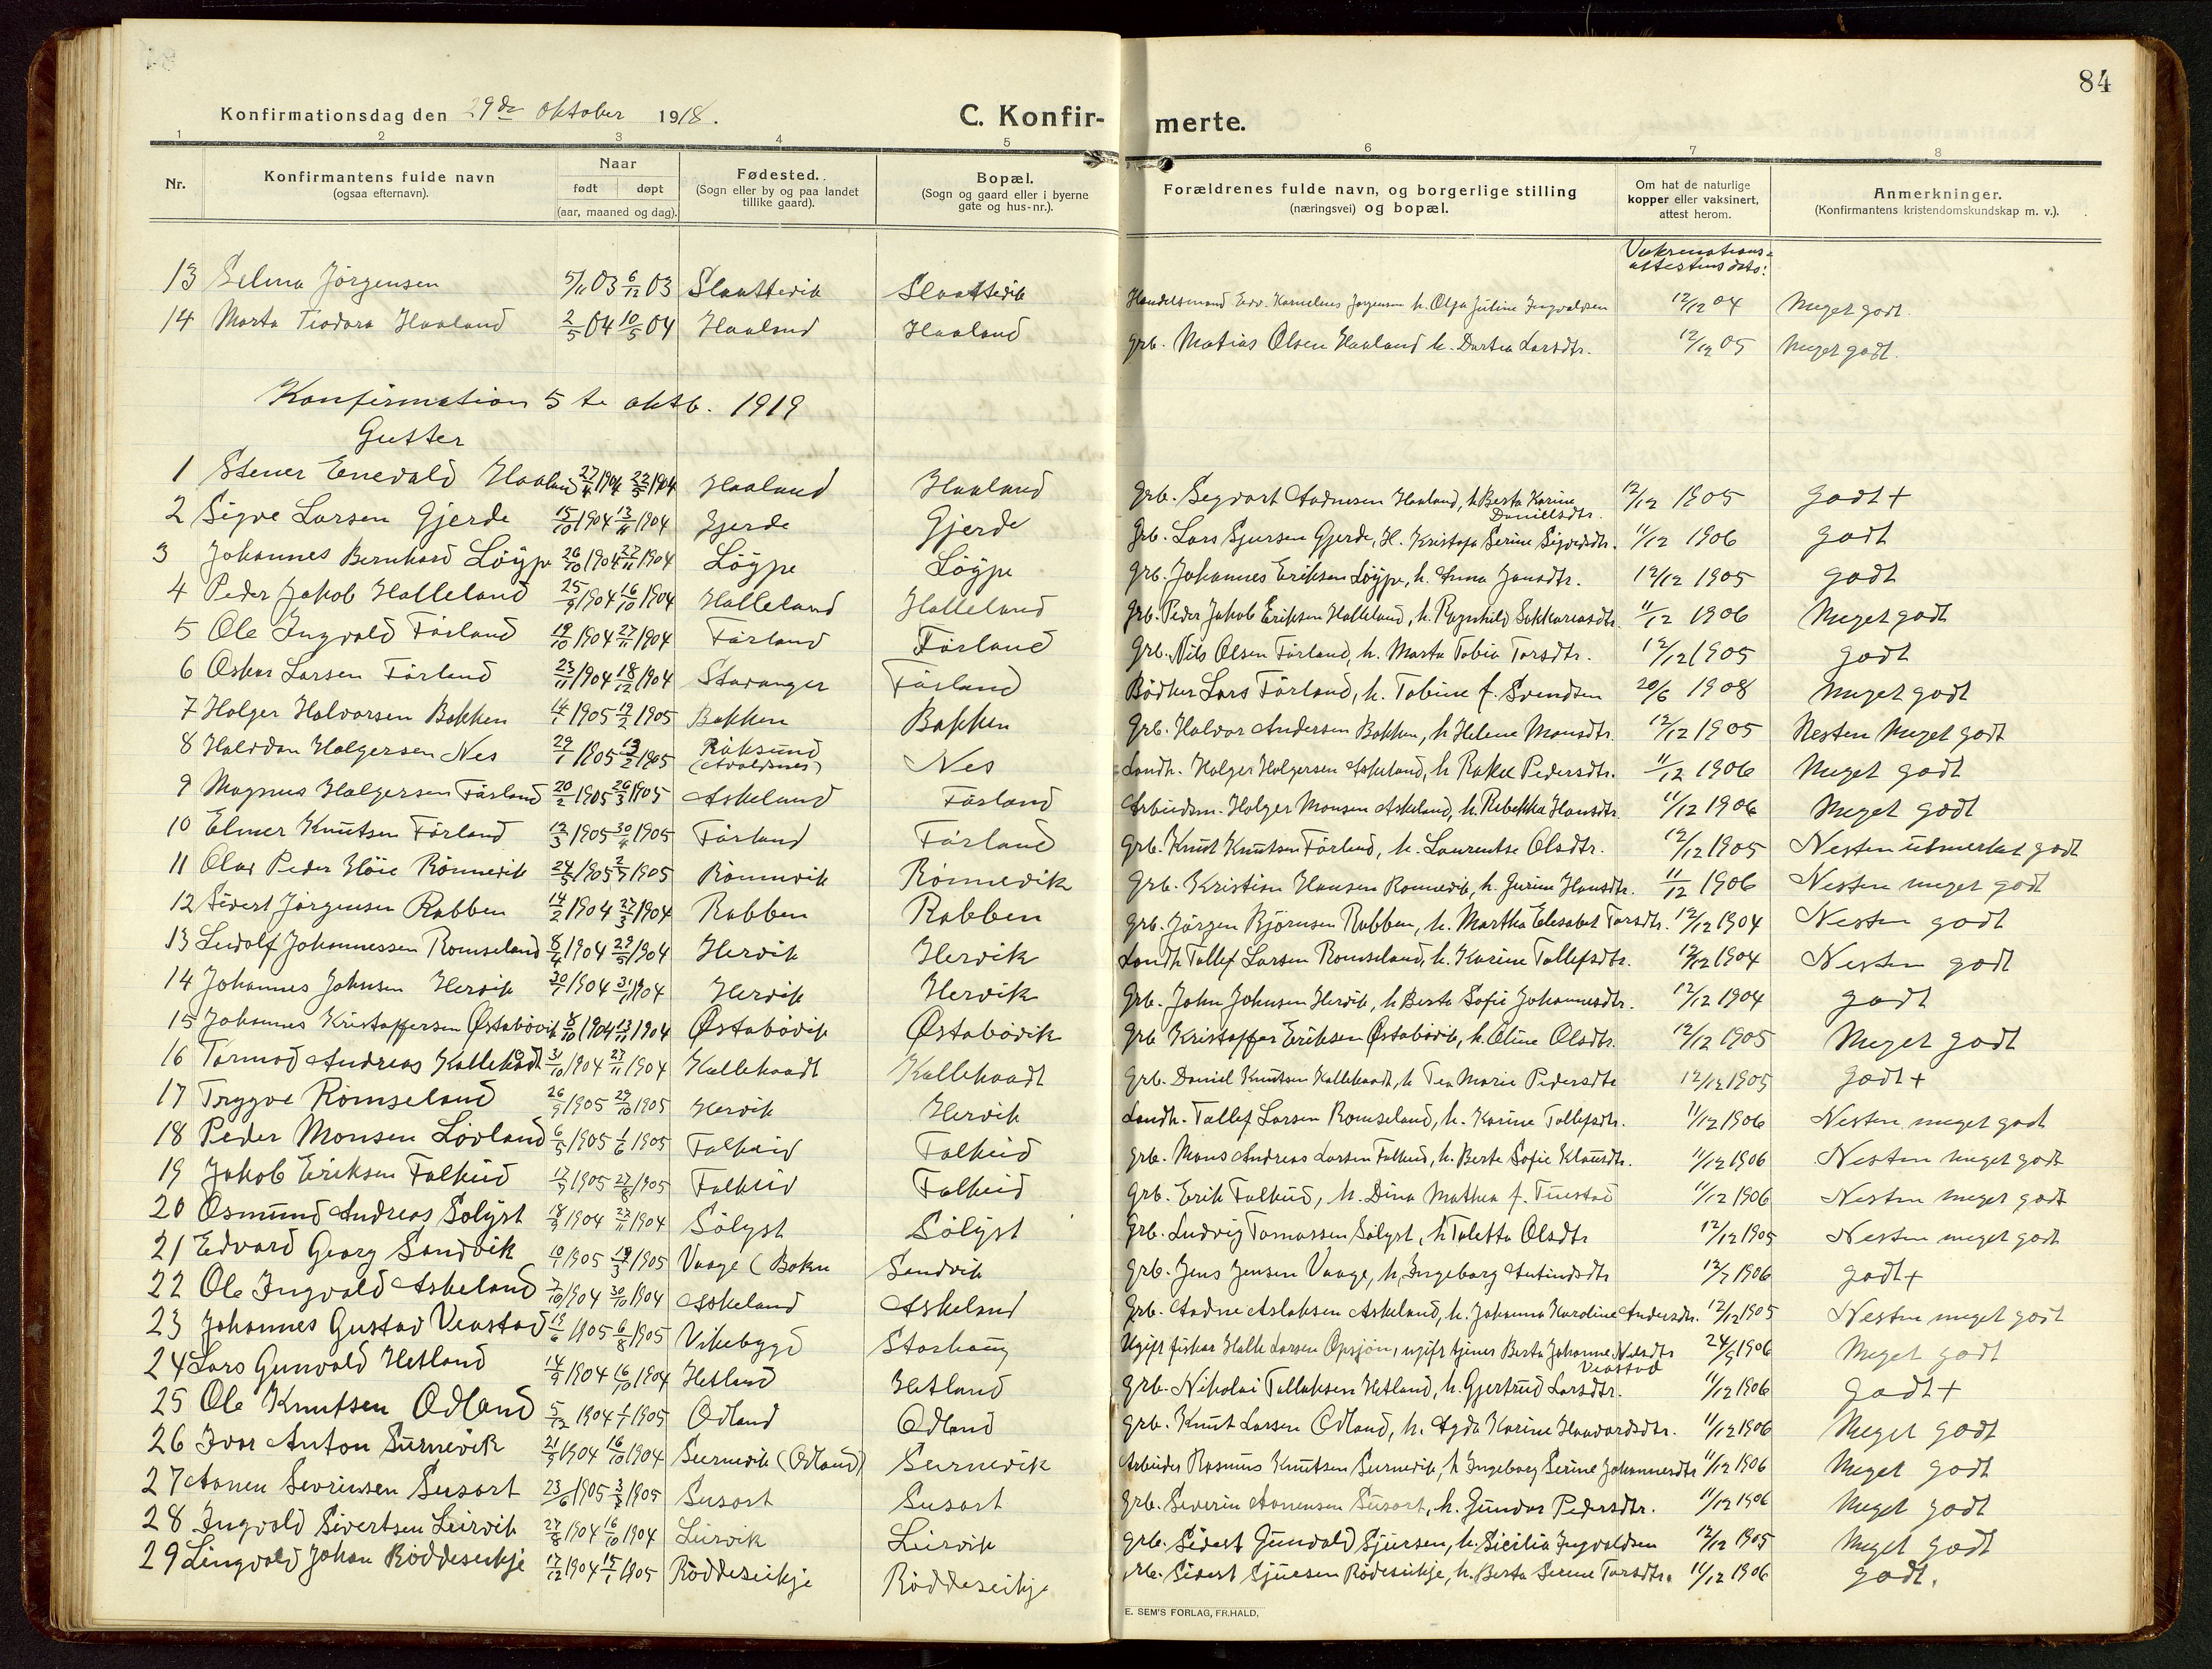 84
Konfirmationsdag den 29de oktober 1918.
C. Konfirmerte.
1 2 3 4 5 6 7 8
Nr. Konfirmantens fulde navn (ogsaa efternavn). Naar født døpt (aar, maaned og dag). Fødested. (Sogn eller by og paa landet tillike gaard). Bopæl. (Sogn og gaard eller i byerne gate og hus-nr.). Forældrenes fulde navn, og borgerlige stilling (næringsvei) og bopæl. Om hat de naturlige kopper eller vaksinert, attest herom. Anmerkninger. (Konfirmantens kristendomskundskap m. v.).
Vaksinations-
attestens dato:
13 Selma Jörgensen 5/11 03 6/12 03 Slaattevik Slaattevik Handelsmand Edv. Kornelius Jørgensen h. Olga Juline Ingvaldsen 12/12 04 Meget godt.
14 Marta Teodora Haaland 2/5 04 10/5 04 Haaland Haaland Grb. Matias Olsen Haaland h. Dortea Larsdtr. 12/12 05 Meget godt.
Konfirmation 5te oktb. 1919
Gutter
1 Stener Enevald Haaland 27/4 1904 22/5 1904 Haaland Haaland Grb. Segvart Aadnesen Haaland, h Berta Karine Danielsdtr. 12/12 1905 godt +
2 Sigve Larsen Gjerde 15/10 1904 13/11 1904 Gjerde Gjerde Grb. Lars Sjursen Gjerde, H. Kristofa Serine Sigvedsdtr. 11/12 1906 godt
3 Johannes Bernhard Löype 26/10 1904 27/11 1904 Löype Löype Grb. Johannes Eriksen Löype, h. Anna Jansdtr. 12/12 1905 godt
4 Peder Jakob Halleland 25/9 1904 16/10 1904 Halleland Halleland Grb. Peder Jakob Eriksen Halleland, h. Ragnhild Sakkariasdtr. 11/12 1906 Meget godt
5 Ole Ingvald Förland 19/10 1904 27/11 1904 Förland Förland Grb. Nils Olsen Förland, h. Marta Tobia Torsdtr. 12/12 1905 godt
6 Oskar Larsen Förland 23/11 1904 18/12 1904 Stavanger Förland Bödker Lars Förland, h. Tobine f. Svendsen 20/6 1908 Meget godt
7 Holger Halvorsen Bakken 14/1 1905 19/2 1905 Bakken Bakken Grb. Halvor Andersen Bakken, h Helene Monsdtr. 12/12 1905 Nesten Meget godt
8 Halvdan Holgersen Nes 29/1 1905 19/2 1905 Röksund (Avaldsnes) Nes Landh. Holger Holgersen Askeland, h Rakel Pedersdtr. 11/12 1906 Meget godt
9 Magnus Holgersen Förland 20/2 1905 26/3 1905 Askeland Förland Arbeidsm. Holger Monsen Askeland, h. Rebekka Hansdtr. 11/12 1906 Meget godt
10 Elmer Knutsen Förland 12/3 1905 30/4 1905 Förland Förland Grb. Knut Knutsen Förland, h. Laurentse Olsdtr. 12/12 1905 Nesten utmerket godt
11 Olav Peder Höie Rönnevik 24/5 1905 2/7 1905 Rönnevik Rönnevik Grb. Kristian Hansen Rönnevik, h. Jurine Hansdtr. 11/12 1906 Nesten meget godt
12 Sivert Jörgensen Rabben 14/2 1904 27/3 1904 Rabben Rabben Grb. Jörgen Björnsen Rabben, h. Martha Elesabet Torsdtr. 12/12 1904 Nesten godt
13 Ludolf Johannessen Romseland 8/4 1904 29/5 1904 Hervik Hervik Landh Tollef Larsen Romseland, h. Karine Tollefsdtr. 12/12 1904 Nesten godt
14 Johannes Johnsen Hervik 30/7 1904 31/7 1904 Hervik Hervik Grb. John Johnsen Hervik, h Berta Sofie Johannesdtr. 12/12 1904 godt
15 Johannes Kristoffersen Østabövik 8/10 1904 13/11 1904 Østabövik Østabövik Grb Kristoffer Eriksen Østabövik, h. Oline Olsdtr. 12/12 1905 Meget godt
16 Tormod Andreas Kallekodt 31/10 1904 27/11 1904 Kallekodt Kallekodt Grb. Daniel Knutsen Kallekodt, h Tea Marie Pedersdtr 12/12 1905 godt +
17 Trygve Romseland 26/9 1905 29/10 1905 Hervik Hervik Landh. Tollef Larsen Romseland, h. Karine Tollefsdtr. 11/12 1906 Nesten meget godt
18 Peder Monsen Lövland 6/5 1905 1/6 1905 Falkeid Falkeid Grb. Mons Andreas Larsen Falkeid, h. Berte Sofie Klausdtr. 11/12 1906 Nesten meget godt
19 Jakob Eriksen Falkeid 17/7 1905 27/8 1905 Falkeid Falkeid Grb. Erik Falkeid, h. Dina Mathea f. Tuestad 11/12 1906 Nesten meget godt
20 Osmund Andreas Sölyst 18/9 1904 27/11 1904 Sölyst Sölyst Grb. Ludvig Tomassen Sölyst, h Toletta Olsdtr 12/12 1905 Nesten meget godt
21 Edvard Georg Sandvik 1905 19/3 1905 Vaage (Bokn Sandvik Grb. Jens Jensen Vaage, h, Ingeborg 12/7 1906 godt +
22 Ole Ingvald Askeland 7/10 1904 30/10 1904 Askeland Askeland Grb. Aadne Aslaksen Askeland, h. Johanna Karoline Andersdtr. 12/12 1905 Nesten meget godt
23 Johannes Gustav Veastad 19/6 1905 6/8 1905 Vikebygd Storhaug Ugift fisker Halle Larsen Opsjön, ugift tjener Berta Johanne Nilsdtr Veastad 24/9 1906 Meget godt
24 Lars Gunvald Hetland 14/9 1904 16/10 1904 Hetland Hetland Grb. Nikolai Tollaksen Hetland, h. Gjertrud Larsdtr. 11/12 1906 godt +
25 Ole Knutsen Odland 5/12 1904 1/1 1905 Odland Odland Grb. Knut Larsen Odland, h. Agda Karine Haavardsdtr. 11/12 1906 Meget godt
26 Ivar Anton Surnevik 21/9 1904 16/10 1904 Surnevik (Odland) Surnevik Arbeider Rasmus Knutsen Surnevik, h Ingeborg Serine Johannesdtr 11/12 1906 Meget godt
27 Aanen Sevrinsen Susort 23/6 1905 3/7 1905 Susort Susort Grb. Severin Aanensen Susort, h. Gundor Pedersdtr. 11/12 1906 Meget godt
28 Ingvald Sivertsen Leirvik 27/8 1904 16/10 1904 Leirvik Leirvik Grb. Sivert Gunvald Sjursen, h. Sicilia Ingvaldsen 12/12 1905 Meget godt
29 Lingvald Johan Röddeseikje 17/12 1904 15/1 1905 Röddeseikje Röddeseikje Grb. Sivert Sjursen Rödeseikje, h. Berta Serine Torsdtr. 11/12 1906 godt.
E. SEM'S FORLAG, FR.HALD.